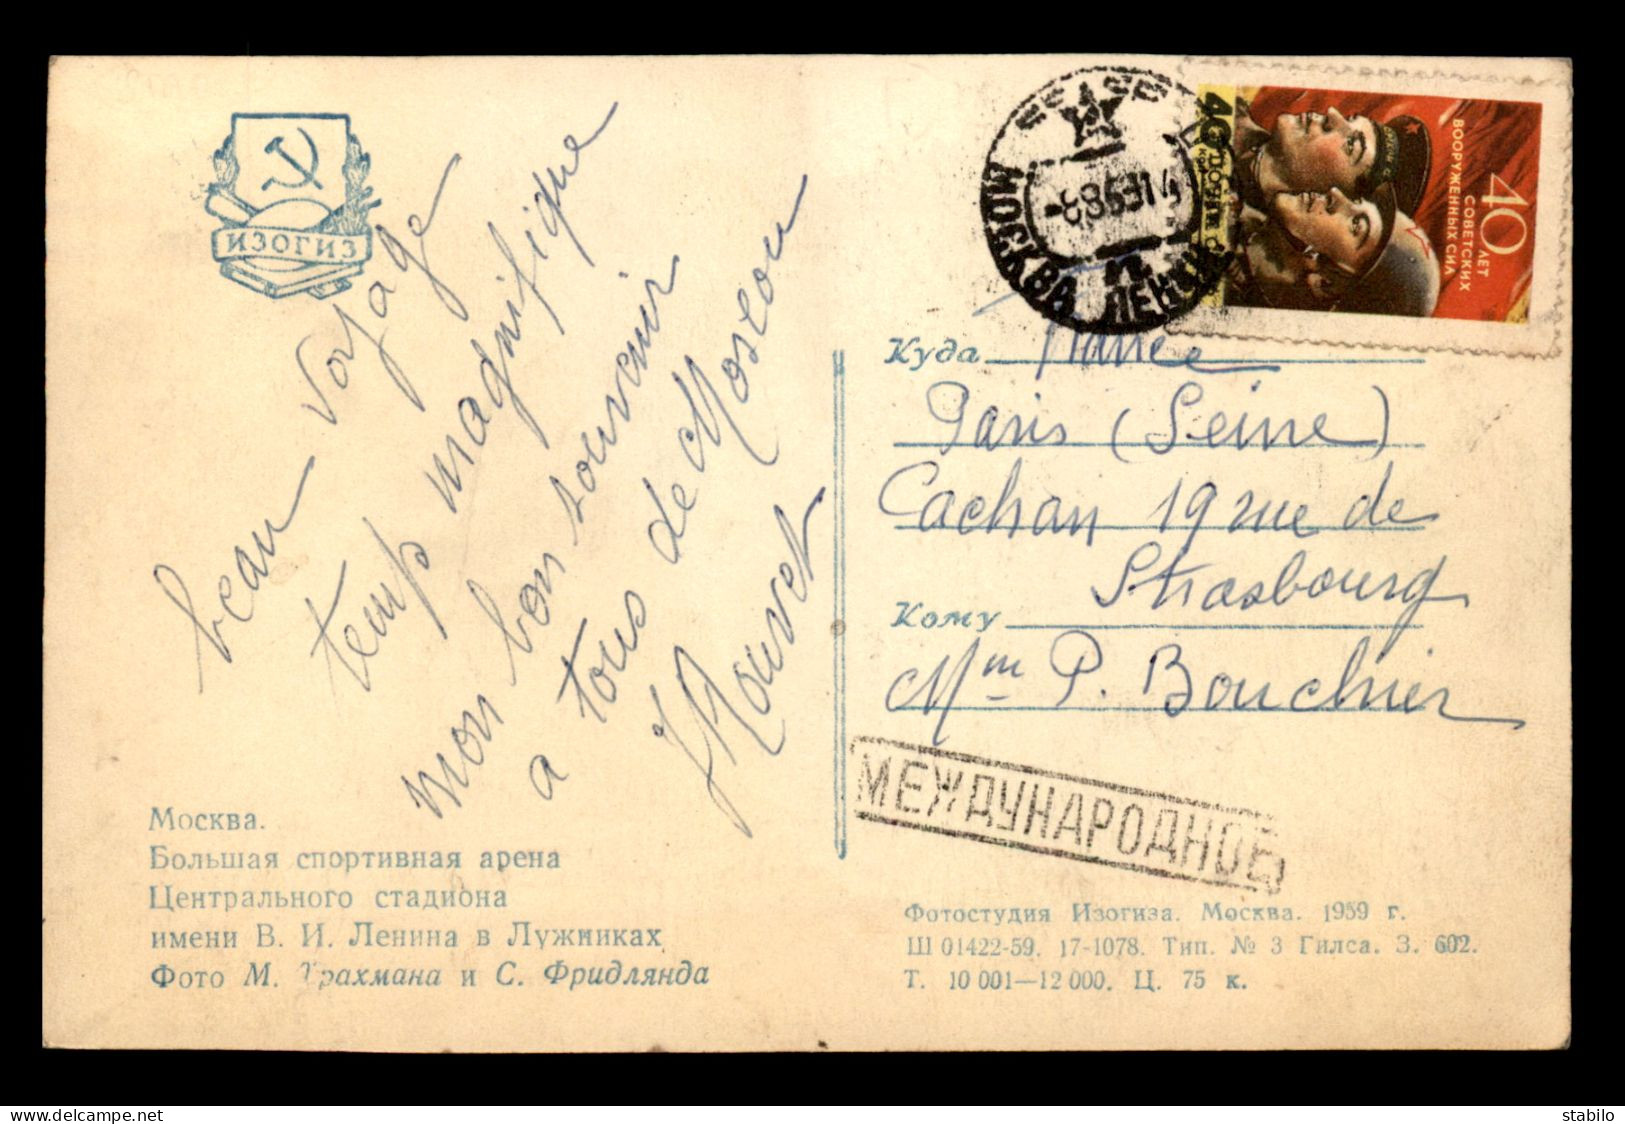 ИЗОГИЗ
beau voyage
temp magnifique
mon bon souvenir
a tous de Moscou
Москва.
Большая спортивная арена
Центрального стадиона
имени В. И. Ленина в Лужниках
Фото М. Трахмана и С. Фридлянда
МОСКВА
40 ЛЕТ
СОВЕТСКИХ
ВООРУЖЕННЫХ СИЛ
40
Куда France
Paris (Seine)
Cachan 19 rue de
Strasbourg
Кому
Mme P. Bouchier
МЕЖДУНАРОДНОЕ
Фотостудия Изогиза. Москва. 1959 г.
Ш 01422-59. 17-1078. Тип. № 3 Гилса. З. 602.
Т. 10 001—12 000. Ц. 75 к.
stabilo